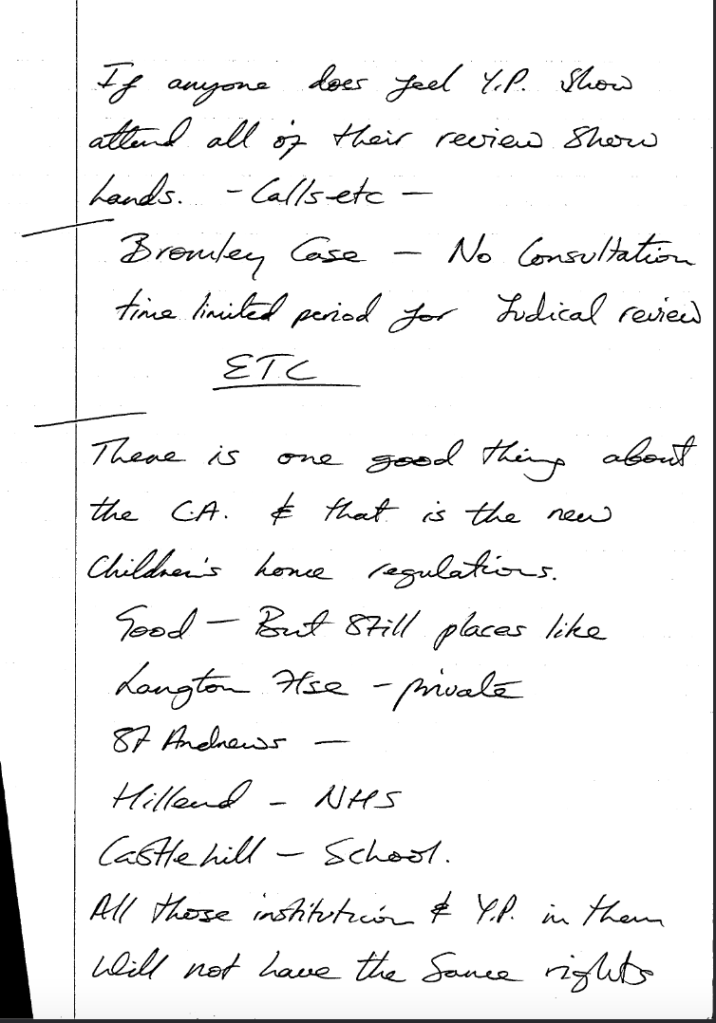 If anyone does feel Y.P. Show
attend all of their review Show
hands. - Calls etc -
Bromley Case - No Consultation
time limited period for Judical review
ETC
There is one good thing about
the C.A. & that is the new
Children's home regulations.
Good - But Still places like
Langton Hse - private
St Andrews -
Hillend - NHS
Castlehill - School.
All those institution & Y.P. in them
Will not have the Same rights